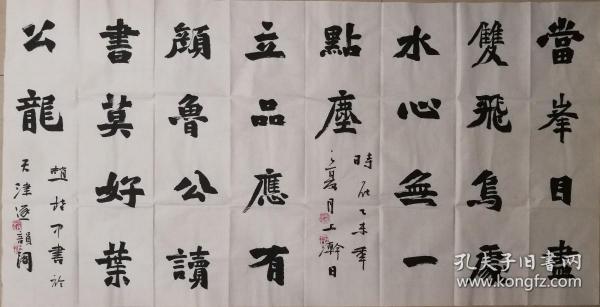 當峯目盡
雙飛鳥處
水心無一
點塵
時在乙未年
夏月上澣日
立品應有
顔魯公讀
書莫好葉
公龍
趙書於
天津逐韻閣
孔夫子旧书网
www.kongfz.com